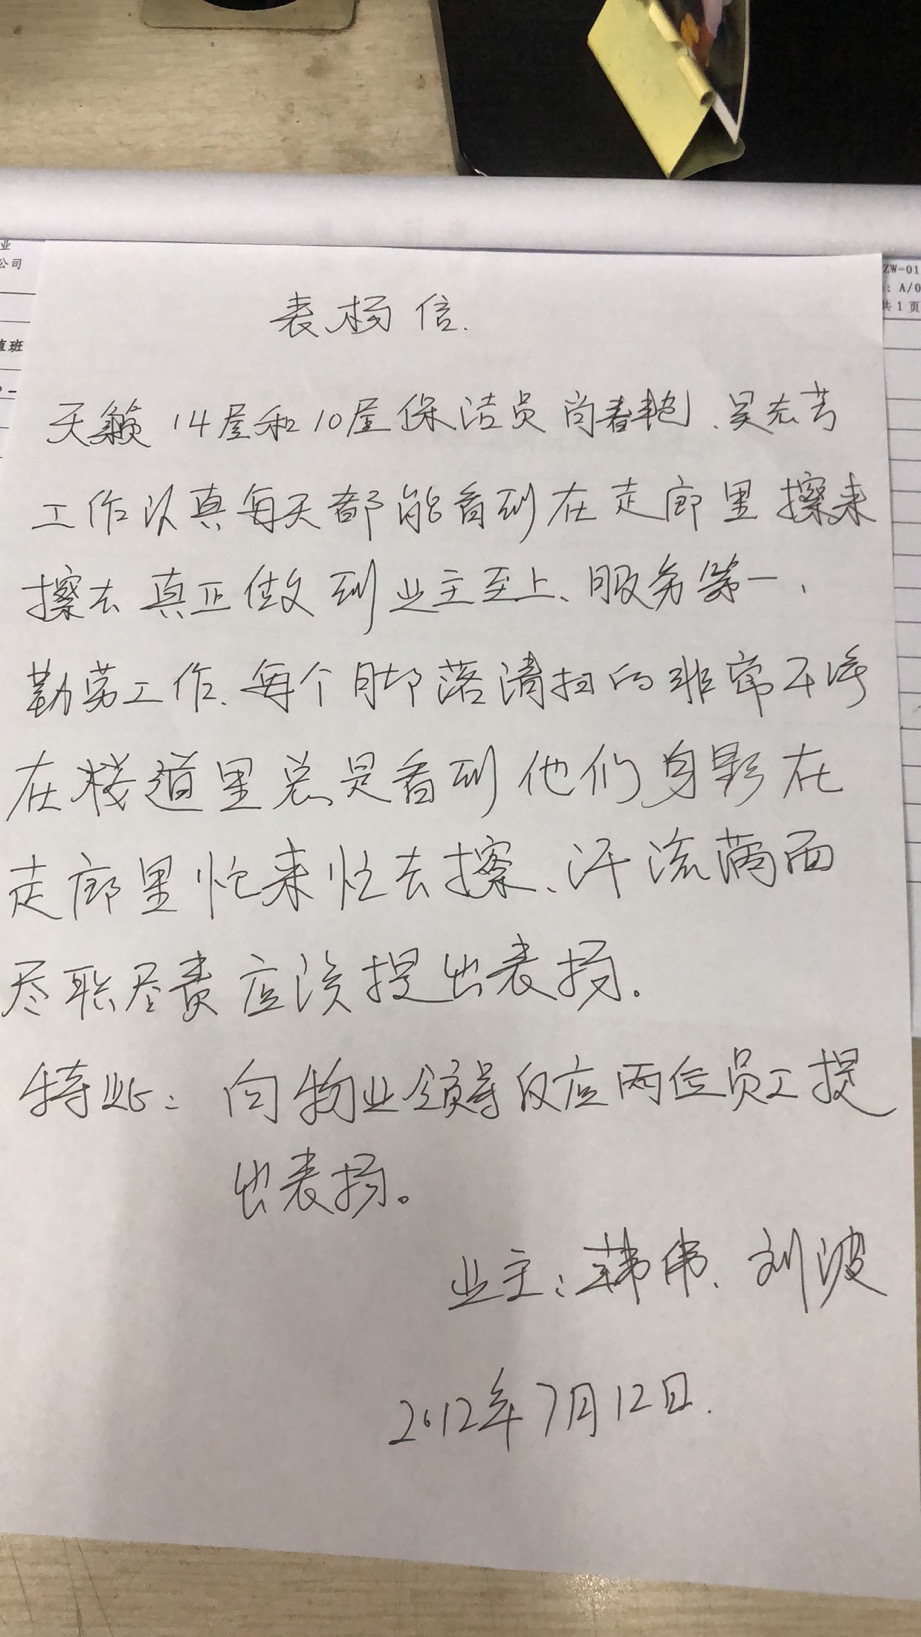 业
公司
值班
ZW-01
: A/0
共 1 页
表扬信.
天籁14屋和10屋保洁员尚春艳、吴宏芳
工作认真每天都能看到在走廊里擦来
擦去真正做到业主至上、服务第一、
勤劳工作、每个脚落清扫的非常干净
在栈道里总是看到他们身影在
走廊里忙来忙去擦、汗流满面
尽职尽责应该提出表扬.
特此: 向物业领导反应两位员工提
出表扬。
业主: 韩伟、刘波
2012年7月12日.